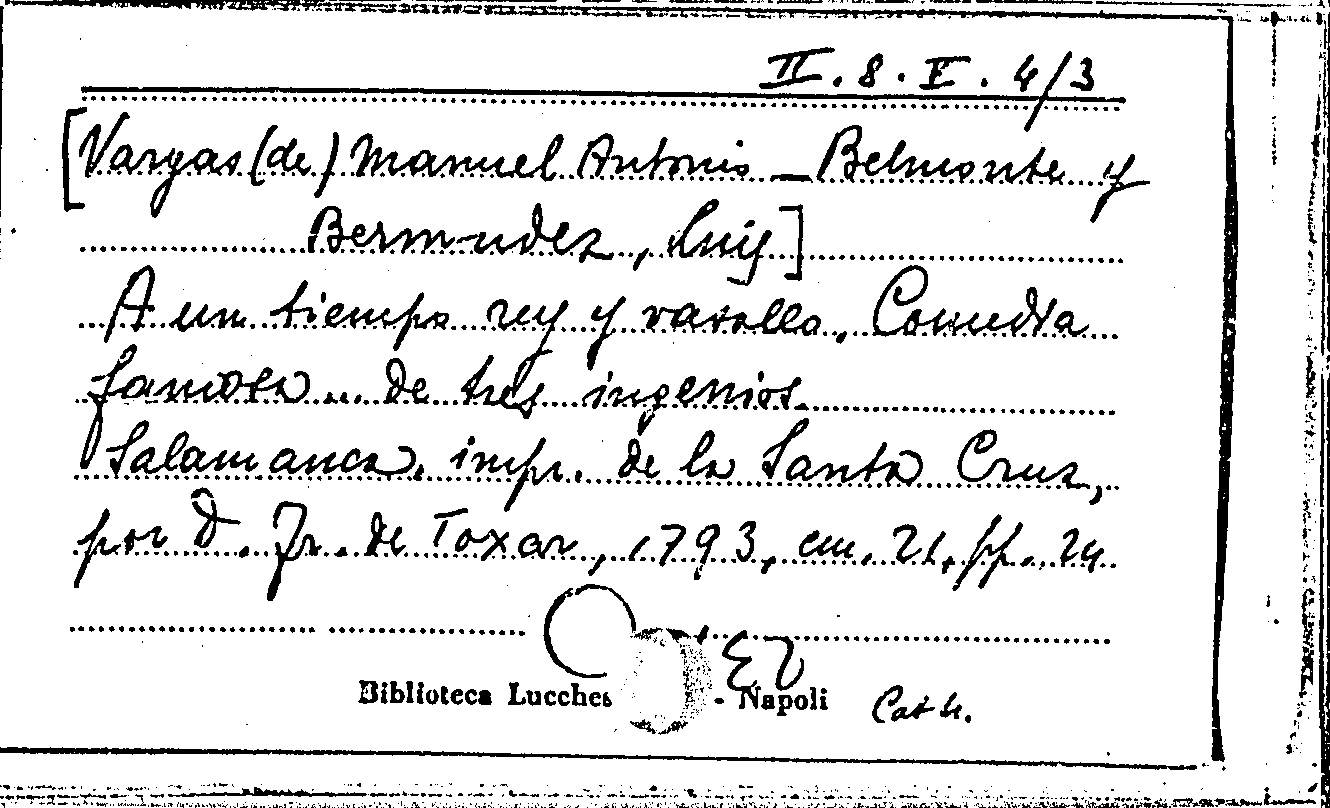 II. 8. V. 4/3
[Vargas (de) Manuel Antonio – Belmonte y
Bermudez, Luis]
A un tiempo rey y vasallo. Comedia
famosa... de tres ingenios.
Salamanca, impr. de la Santa Cruz,
por D. Fr. de Toxar, 1793, cm. 21, pp. 24
Biblioteca Lucches - Napoli